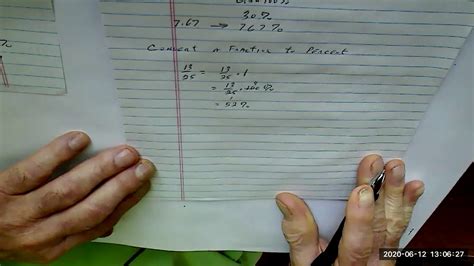 30%
7.67 → 767%
Convert a Fraction to Percent
13/25 = 13/25 · 1
= 13/25 · 100%
= 52%
2020-06-12 13:06:27